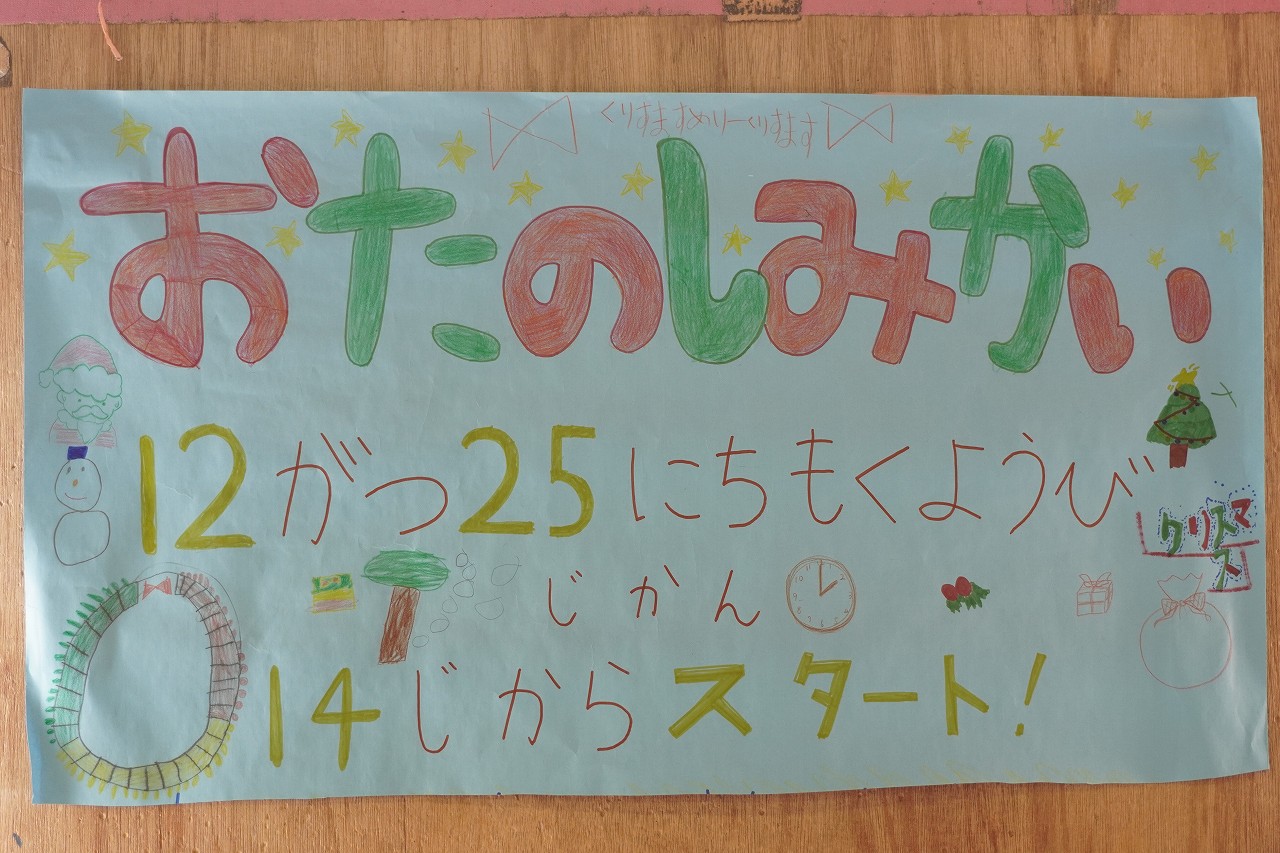 くりすますめりーくりすます
おたのしみかい
12がつ25にちもくようび
クリスマ
ス
じかん
14じからスタート!